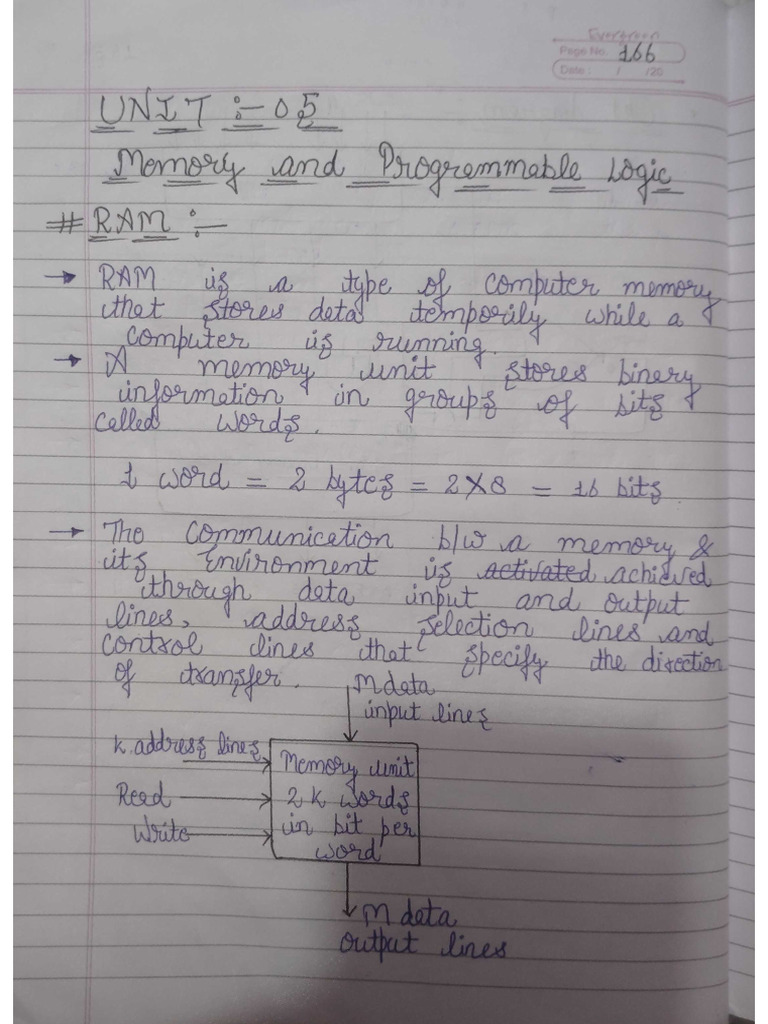 Evergreen
Page No. 166
Date : / /20
UNIT :- 05
Memory and Programmable Logic
# RAM :-
→ RAM is a type of computer memory
that stores data temporily while a
computer is running.
→ A memory unit stores binary
information in groups of bits
called words.
1 word = 2 bytes = 2×8 = 16 bits
→ The communication b/w a memory &
its Environment is activated achieved
through data input and output
lines, address selection lines and
control lines that specify the direction
of transfer.
M data
input lines
K address lines
Read
Write
Memory unit
2 K words
in bit per
word
M data
output lines